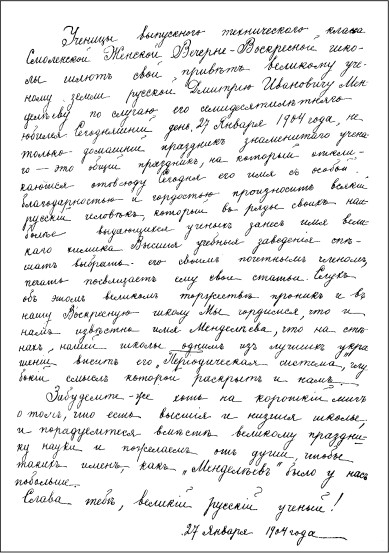 Ученицы выпускного технического класса
Смоленской Женской Вечерне-Воскресной шко-
лы шлютъ свой привѣтъ великому уче-
ному земли русской Дмитрію Ивановичу Мен-
делѣеву по случаю его семидесятилѣтняго
юбилея Сегодняшній день, 27 Января 1904 года, не
только домашній праздникъ знаменитаго учена-
го — это общій праздникъ, на который отклик-
каются отовсюду Сегодня его имя съ особой
благодарностью и гордостью произноситъ всякій
русскій человѣкъ, который въ ряды своихъ наи-
болѣе выдающихся ученыхъ занесъ имя вели-
каго химика Высшія учебныя заведенія спѣ-
шатъ выбрать его своимъ почетнымъ членомъ,
печать посвящаетъ ему свои статьи. Слухъ
объ этомъ великомъ торжествѣ проникъ и въ
нашу Воскресную школу Мы гордимся, что и
намъ извѣстно имя Менделѣева, что на стѣ-
нахъ нашей школы однимъ изъ лучшихъ укра-
шеній виситъ его „Періодическая система", глу-
бокій смыслъ которой раскрытъ и намъ.
Забудемте-же хоть на короткій мигъ
о томъ, что есть высшія и низшія школы,
и порадуемтеся вмѣстѣ великому праздни-
ку науки и пожелаемъ отъ души, чтобы
такихъ именъ, какъ „Менделѣевъ" было у насъ
побольше.
Слава тебѣ, великій русскій ученый!
27 Января 1904 года